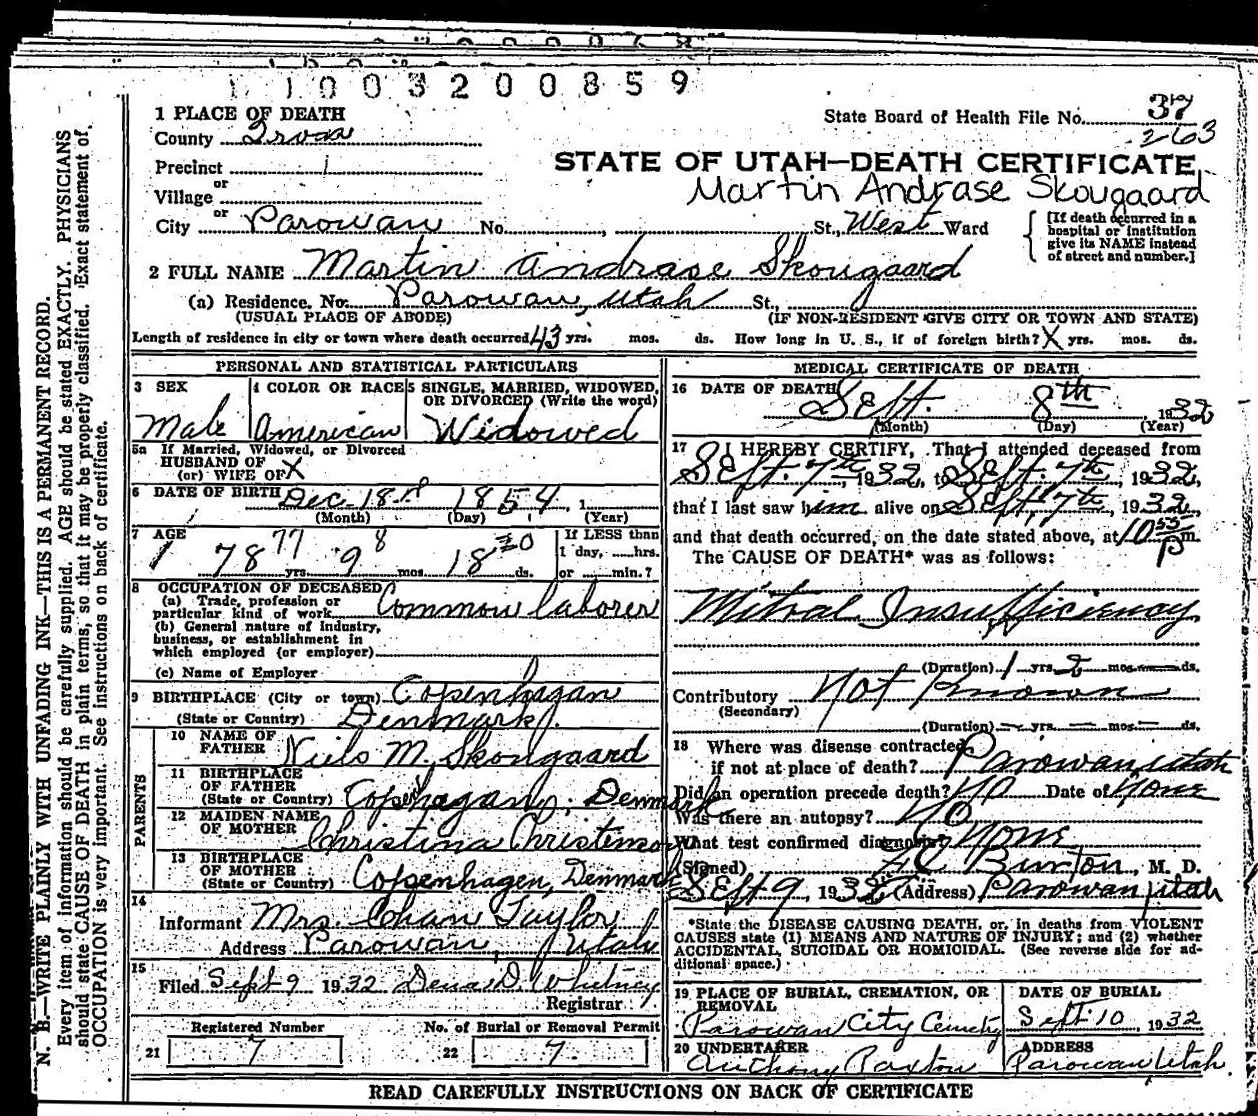 1 1 0 0 3 2 0 0 8 5 9
1 PLACE OF DEATH
County Iron
State Board of Health File No. 37
263
Precinct 1
or
Village
or
STATE OF UTAH—DEATH CERTIFICATE
Martin Andrase Skougaard
City Parowan No. St., West Ward
[If death occurred in a
hospital or institution
give its NAME instead
of street and number.]
2 FULL NAME Martin Andrase Skougaard
(a) Residence, No. Parowan, Utah St.,
(USUAL PLACE OF ABODE) (IF NON-RESIDENT GIVE CITY OR TOWN AND STATE)
Length of residence in city or town where death occurred 43 yrs. mos. ds. How long in U. S., if of foreign birth? X yrs. mos. ds.
PERSONAL AND STATISTICAL PARTICULARS
3 SEX
Male
4 COLOR OR RACE
American
5 SINGLE, MARRIED, WIDOWED,
OR DIVORCED (Write the word)
Widowed
5a If Married, Widowed, or Divorced
HUSBAND OF X
(or) WIFE OF X
6 DATE OF BIRTH Dec. 18th 1854, 1
(Month) (Day) (Year)
7 AGE
1 78 77 yrs. 9 8 mos. 18 20 ds.
If LESS than
1 day, hrs.
or min.?
8 OCCUPATION OF DECEASED
(a) Trade, profession or
particular kind of work Common laborer
(b) General nature of Industry,
business, or establishment in
which employed (or employer)
(c) Name of Employer
9 BIRTHPLACE (City or town) Copenhagan
(State or Country) Denmark.
PARENTS
10 NAME OF
FATHER Niels M. Skougaard
11 BIRTHPLACE
OF FATHER
(State or Country) Copenhagan, Denmark
12 MAIDEN NAME
OF MOTHER Christina Christenson
13 BIRTHPLACE
OF MOTHER
(State or Country) Copenhagen, Denmark
14
Informant Mrs. Chan Taylor
Address Parowan, Utah
15
Filed Sept 9 1932 Dena D. Whitney
Registrar
Registered Number
21 7
No. of Burial or Removal Permit
22 7.
MEDICAL CERTIFICATE OF DEATH
16 DATE OF DEATH
Sept. 8th, 1932
(Month) (Day) (Year)
17 I HEREBY CERTIFY, That I attended deceased from
Sept. 7th, 1932, to Sept. 7th, 1932,
that I last saw him alive on Sept, 7th, 1932,
and that death occurred, on the date stated above, at 10 55 P m.
The CAUSE OF DEATH* was as follows:
Mitral Insufficiency
(Duration) 1 yrs. 2 mos. — ds.
Contributory Not Known
(Secondary)
(Duration) — yrs. — mos. — ds.
18 Where was disease contracted
if not at place of death? Parowan, utah
Did an operation precede death? No Date of None
Was there an autopsy? No
What test confirmed diagnosis? None
(Signed) Burton, M. D.
Sept 9, 1932 (Address) Parowan, utah
*State the DISEASE CAUSING DEATH, or, in deaths from VIOLENT
CAUSES state (1) MEANS AND NATURE OF INJURY; and (2) whether
ACCIDENTAL, SUICIDAL OR HOMICIDAL. (See reverse side for ad-
ditional space.)
19 PLACE OF BURIAL, CREMATION, OR
REMOVAL
Parowan City Cemetry
DATE OF BURIAL
Sept. 10, 1932
20 UNDERTAKER
Anthony Paxton
ADDRESS
Parowan Utah
READ CAREFULLY INSTRUCTIONS ON BACK OF CERTIFICATE
N. B.—WRITE PLAINLY WITH UNFADING INK—THIS IS A PERMANENT RECORD.
Every item of information should be carefully supplied. AGE should be stated EXACTLY. PHYSICIANS
should state CAUSE OF DEATH in plain terms, so that it may be properly classified. Exact statement of
OCCUPATION is very important. See instructions on back of certificate.